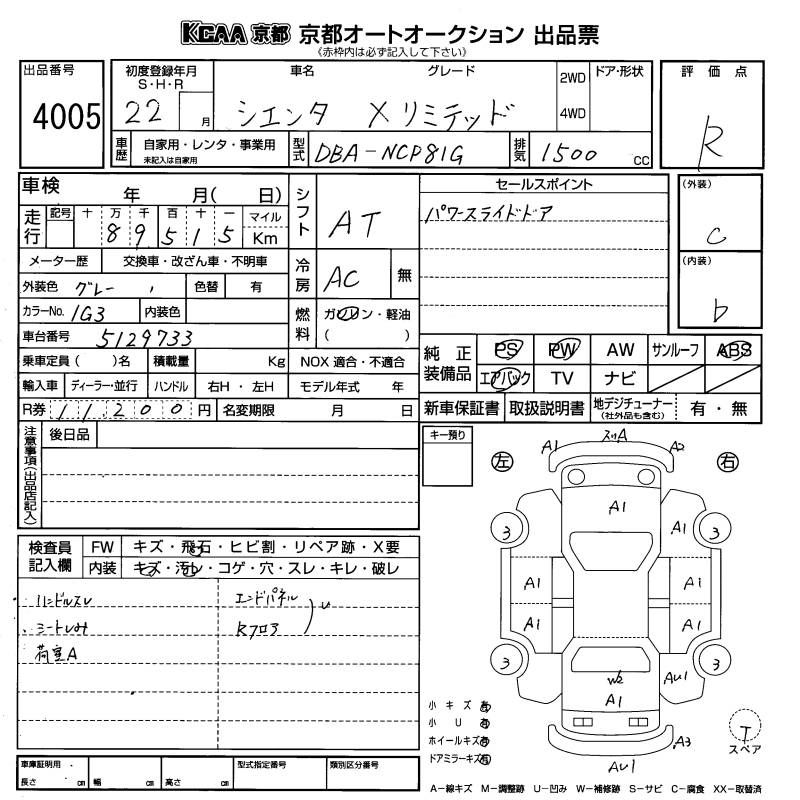 KCAA 京都 京都オートオークション 出品票
《赤枠内は必ず記入して下さい》
出品番号 4005
初度登録年月 S・H・R 22 月
車名 グレード シエンタ Xリミテッド
2WD 4WD ドア・形状
評価点 R
車歴 自家用・レンタ・事業用 未記入は自家用
型式 DBA-NCP81G
排気 1500 CC
車検 年 月( 日)
走行 記号 十 万 千 百 十 一 マイル Km
89515
シフト AT
セールスポイント
パワースライドドア
(外装) C
(内装) b
メーター歴 交換車・改ざん車・不明車
冷房 AC 無
外装色 グレー 色替 有
カラーNo. 1G3 内装色
燃料 ガソリン・軽油 ( )
車台番号 5129733
乗車定員( )名 積載量 Kg NOX適合・不適合
輸入車 ディーラー・並行 ハンドル 右H・左H モデル年式 年
R券 11200円 名変期限 月 日
純正装備品 PS PW AW サンルーフ ABS
エアバック TV ナビ
新車保証書 取扱説明書 地デジチューナー (社外品も含む) 有・無
注意事項(出品店記入) 後日品
キー預り
左 右
A1 スリA A2
A1
3 A1 3
A1 A1
A1 A1
3 W2 AU1 3
A1
A3
AU1
検査員記入欄 FW キズ・飛石・ヒビ割・リペア跡・X要
内装 キズ・汚レ・コゲ・穴・スレ・キレ・破レ
ハンドルスレ エンドパネル
シートしみ Rフロア U
荷室A
小キズ有
小U有
ホイールキズ有
ドアミラーキズ有
T スペア
車庫証明用 長さ cm 幅 cm 高さ cm 型式指定番号 類別区分番号
A-線キズ M-調整跡 U-凹み W-補修跡 S-サビ C-腐食 XX-取替済